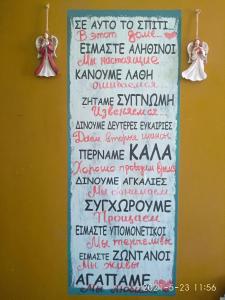 ΣΕ ΑΥΤΟ ΤΟ ΣΠΙΤΙ...
В этот доме...
ΕΙΜΑΣΤΕ ΑΛΗΘΙΝΟΙ
Мы настоящие
ΚΑΝΟΥΜΕ ΛΑΘΗ
ошибаемся
ΖΗΤΑΜΕ ΣΥΓΓΝΩΜΗ
Извеняемся
ΔΙΝΟΥΜΕ ΔΕΥΤΕΡΕΣ ΕΥΚΑΙΡΙΕΣ
Даем вторые
ΠΕΡΝΑΜΕ ΚΑΛΑ
Хорошо проводим время
ΔΙΝΟΥΜΕ ΑΓΚΑΛΙΕΣ
Мы обнимаем
ΣΥΓΧΩΡΟΥΜΕ
Прощаем
ΕΙΜΑΣΤΕ ΥΠΟΜΟΝΕΤΙΚΟΙ
Мы терпеливы
ΕΙΜΑΣΤΕ ΖΩΝΤΑΝΟΙ
Мы живы
ΑΓΑΠΑΜΕ
Мы
2021-5-23 11:56